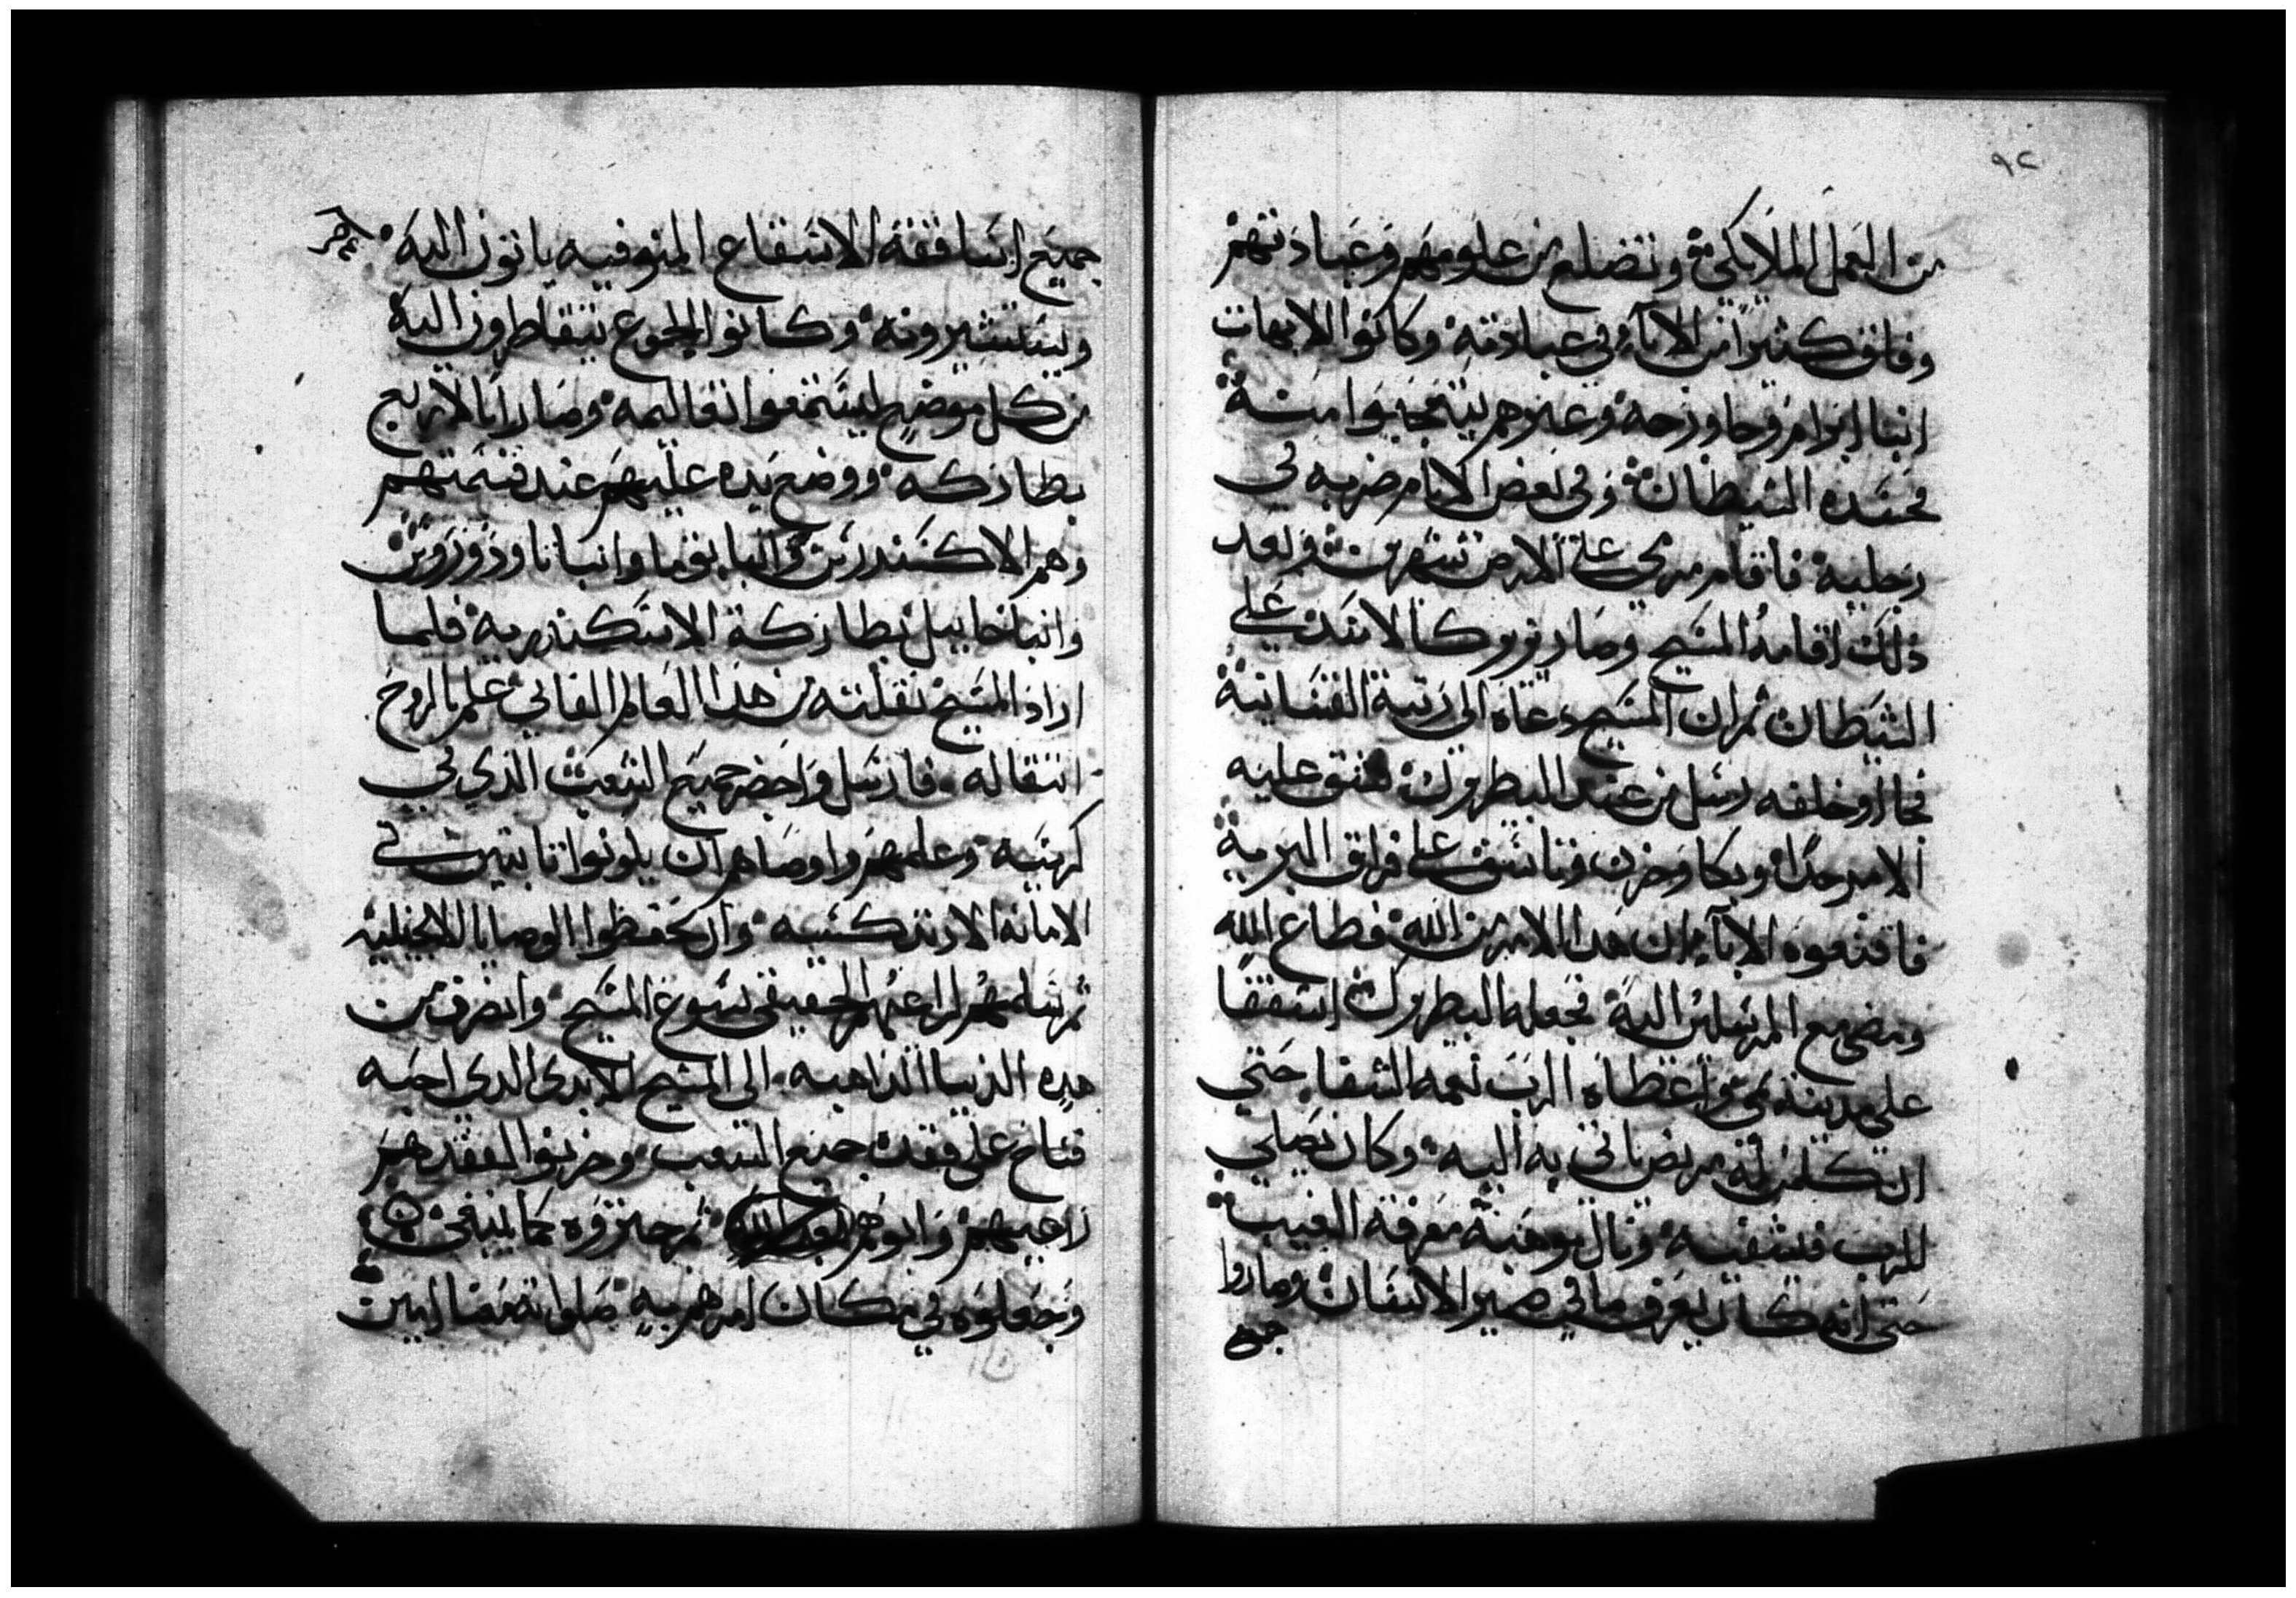 ٩٢
من العمل الملايكي وتضلع من علومهم وعبادتهم
وفاق كثيرًا من الاباء في عبادته وكانوا الابهات
انبا ابرام وجاورجه وغيرهم يتعجبوا منه
فحسده الشيطان وفي بعض الايام ضربه في
رجليه فاقام مرمي علي الارض شهرين وبعد
ذلك اقامه المسيح وصار نوره كالاسد علي
الشيطان ثم ان المسيح دعاه الى رتبة القسانية
فجا اوخلفه رسل من عند البطريرك فشق عليه
الامر جدا وبكا وحزن وتاسف علي فراق البرية
فاقنعوه الاباء ان هدا الامر من الله فطاع الله
ومضي مع المرسلين اليه فجعله البطريرك اسقفا
على مدينة واعطاه الرب نعمه الشفا حتي
ان كلمن له مريض ياتي به اليه وكان يصلي
للرب فيشفيه ونال موهبة معرفة الغيب
حتى انه كان يعرف ما في ضمير الانسان وصاروا
جميع
جميع اساقفة الاسقاع المنوفيه ياتون اليه
ويستشيرونه وكانوا الجموع يتقاطرون اليه
من كل موضع ليسمعوا تعاليمه وصار ابا لاربع
بطاركه ووضع يده عليهم عند قسمتهم
وهم الاكسندرس وانبا قزما وانبا تاودوروس
وانبا خاييل بطاركة الاسكندريه فلما
اراد المسيح نقلته من هدا العالم الفاني علم بالروح
انتقاله فارسل واحضر جميع الشعب الذي في
كرسيه وعلمهم واوصاهم ان يكونوا تابتين في
الامانه الارتدكسيه وان يحفظوا الوصايا الانجيليه
ثم سلمهم لراعيهم الحقيقي يسوع المسيح وانصرف من
هده الدنيا الداهبه الى المسيح الابدى الدى احبه
فناح على فقده جميع الشعب وحزنوا لفقدهم
راعيهم وابوهم ثم جنزوه كما ينبغي
وجعلوه في مكان امرهم به صلواته معنا امين